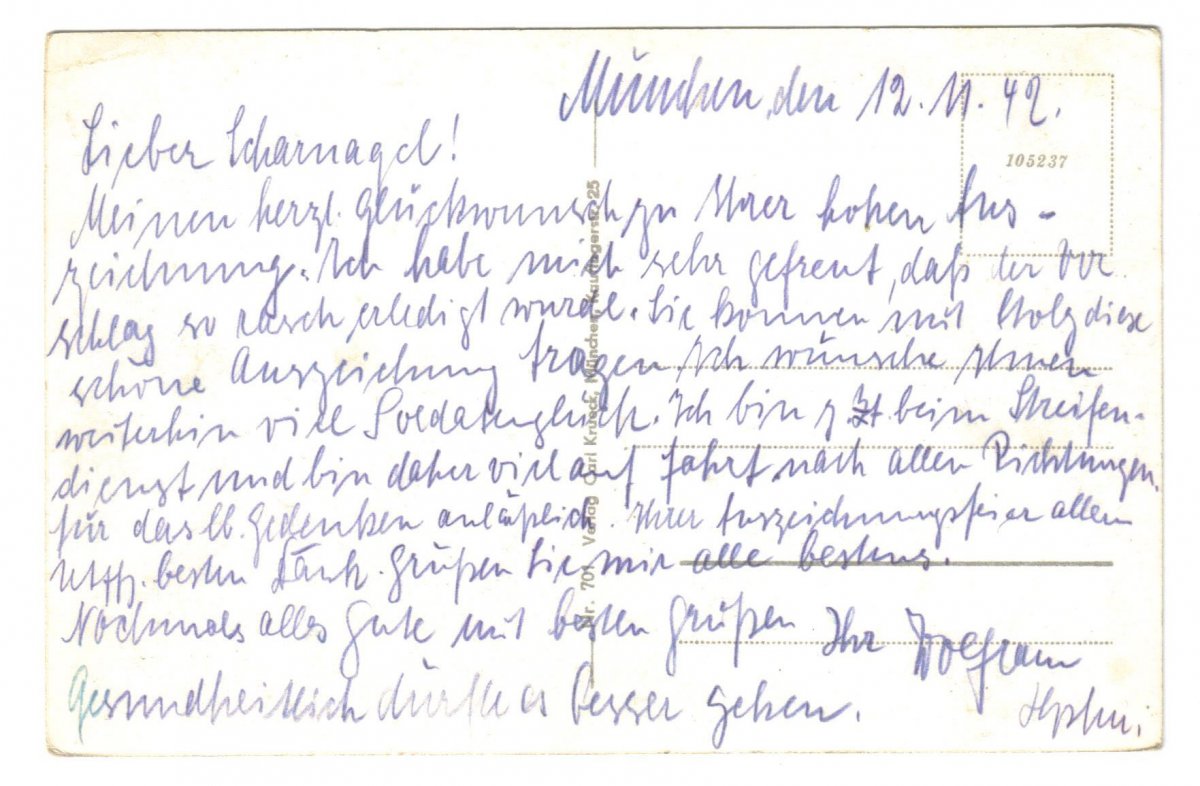 München, den 12.11.42.
105237
Lieber Scharnagel!
Meinen herzl. Glückwunsch zu Ihrer hohen Aus-
zeichnung. Ich habe mich sehr gefreut, daß der Vor
schlag so rasch erledigt wurde. Sie können mit Stolz diese
schöne Auszeichung tragen. Ich wünsche Ihnen
weiterhin viel Soldatenglück. Ich bin z Zt beim Streifen-
dienst und bin daher viel auf Fahrt nach allen Richtungen.
für das lb. Gedenken anläßlich Ihrer Auszeichnungsfeier allen
Uffz. besten Dank. Grüßen Sie mir alle bestens.
Nochmals alles Gute mit besten Grüßen Ihr Wolfram
Gesundheitlich dürfte es besser gehen.
Nr. 701 Verlag Carl Krueck, München, Kaufingerstr. 25